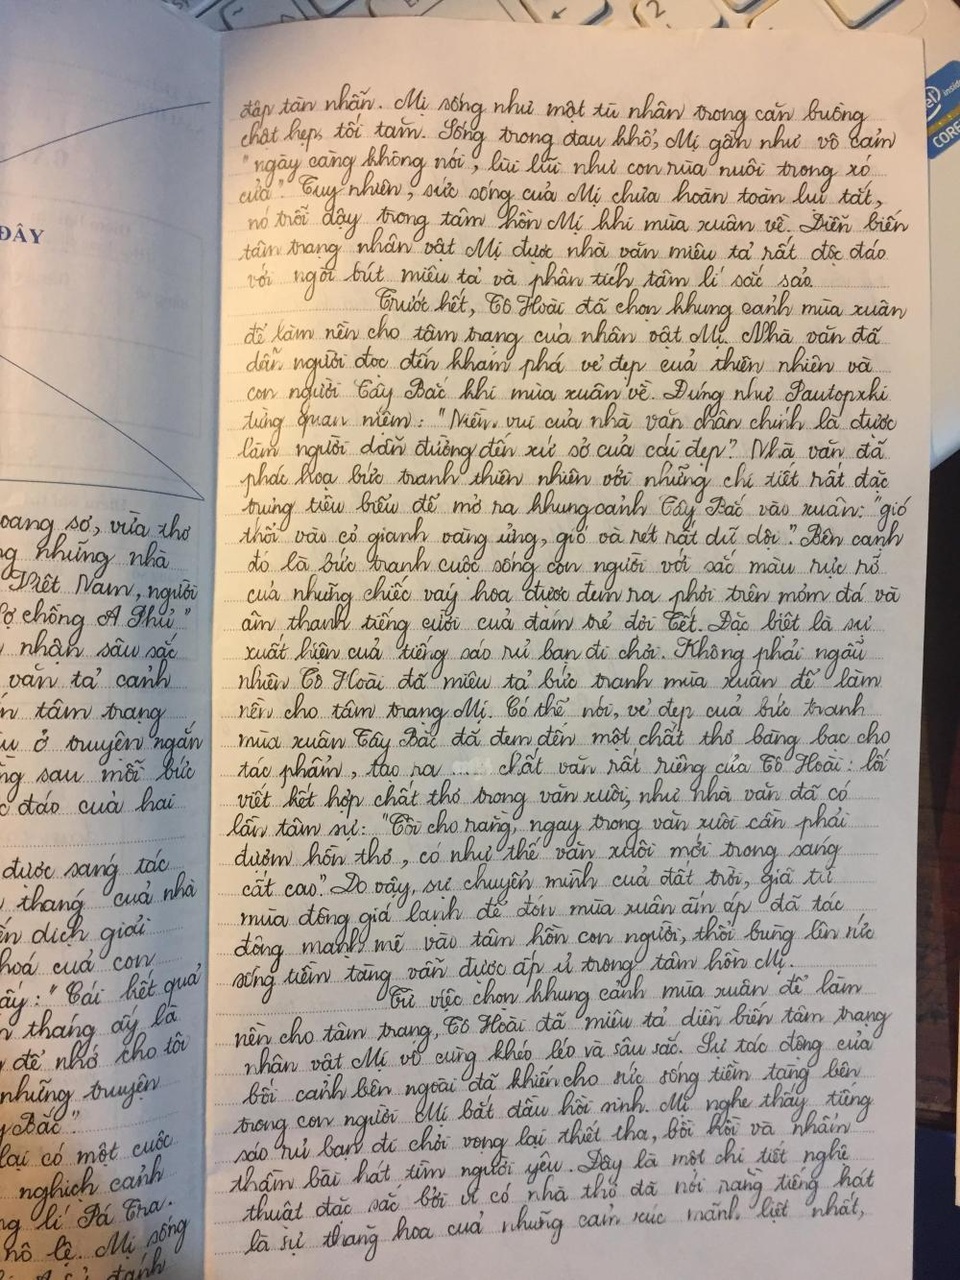 ĐÂY
oang sơ, vừa thơ
g những nhà
Việt Nam, người
ợ chồng A Phủ"
nhận sâu sắc
văn tả cảnh
n tâm trạng
u ở truyện ngắn
ng sau mỗi bức
c đáo của hai
được sáng tác
thang của nhà
ến dịch giải
hoá của con
ấy: "Cái kết quả
tháng ấy là
để nhớ cho tôi
những truyện
y Bắc".
lại có một cuộc
nghịch cảnh
g lí Pá Tra.
nô lệ. Mị sống
A Sử đánh
đập tàn nhẫn. Mị sống như một tù nhân trong căn buồng
chật hẹp, tối tăm. Sống trong đau khổ, Mị gần như vô cảm
"ngày càng không nói, lùi lũi như con rùa nuôi trong xó
cửa". Tuy nhiên, sức sống của Mị chưa hoàn toàn lụi tắt,
nó trỗi dậy trong tâm hồn Mị khi mùa xuân về. Diễn biến
tâm trạng nhân vật Mị được nhà văn miêu tả rất độc đáo
với ngòi bút miêu tả và phân tích tâm lí sắc sảo.
Trước hết, Tô Hoài đã chọn khung cảnh mùa xuân
để làm nền cho tâm trạng của nhân vật Mị. Nhà văn đã
dẫn người đọc đến khám phá vẻ đẹp của thiên nhiên và
con người Tây Bắc khi mùa xuân về. Đúng như Pautopxki
từng quan niệm: "Niềm vui của nhà văn chân chính là được
làm người dẫn đường đến xứ sở của cái đẹp". Nhà văn đã
phác hoạ bức tranh thiên nhiên với những chi tiết rất đặc
trưng tiêu biểu để mở ra khung cảnh Tây Bắc vào xuân: "gió
thổi vào cỏ gianh vàng ửng, gió và rét rất dữ dội". Bên cạnh
đó là bức tranh cuộc sống con người với sắc màu rực rỡ
của những chiếc váy hoa được đem ra phơi trên mỏm đá và
âm thanh tiếng cười của đám trẻ đợi Tết. Đặc biệt là sự
xuất hiện của tiếng sáo rủ bạn đi chơi. Không phải ngẫu
nhiên Tô Hoài đã miêu tả bức tranh mùa xuân để làm
nền cho tâm trạng Mị. Có thể nói, vẻ đẹp của bức tranh
mùa xuân Tây Bắc đã đem đến một chất thơ bàng bạc cho
tác phẩm, tạo ra .... chất văn rất riêng của Tô Hoài: lối
viết kết hợp chất thơ trong văn xuôi, như nhà văn đã có
lần tâm sự: "Tôi cho rằng, ngay trong văn xuôi cần phải
đượm hồn thơ, có như thế văn xuôi mới trong sáng
cất cao". Do vậy, sự chuyển mình của đất trời, giã từ
mùa đông giá lạnh để đón mùa xuân ấm áp đã tác
động mạnh mẽ vào tâm hồn con người, thổi bùng lên sức
sống tiềm tàng vẫn được ấp ủ trong tâm hồn Mị.
Từ việc chọn khung cảnh mùa xuân để làm
nền cho tâm trạng, Tô Hoài đã miêu tả diễn biến tâm trạng
nhân vật Mị vô cùng khéo léo và sâu sắc. Sự tác động của
bối cảnh bên ngoài đã khiến cho sức sống tiềm tàng bên
trong con người Mị bắt đầu hồi sinh. Mị nghe thấy tiếng
sáo rủ bạn đi chơi vọng lại thiết tha, bồi hồi và nhẩm
thầm bài hát tìm người yêu. Đây là một chi tiết nghệ
thuật đặc sắc bởi vì có nhà thơ đã nói rằng tiếng hát
là sự thăng hoa của những cảm xúc mãnh liệt nhất,